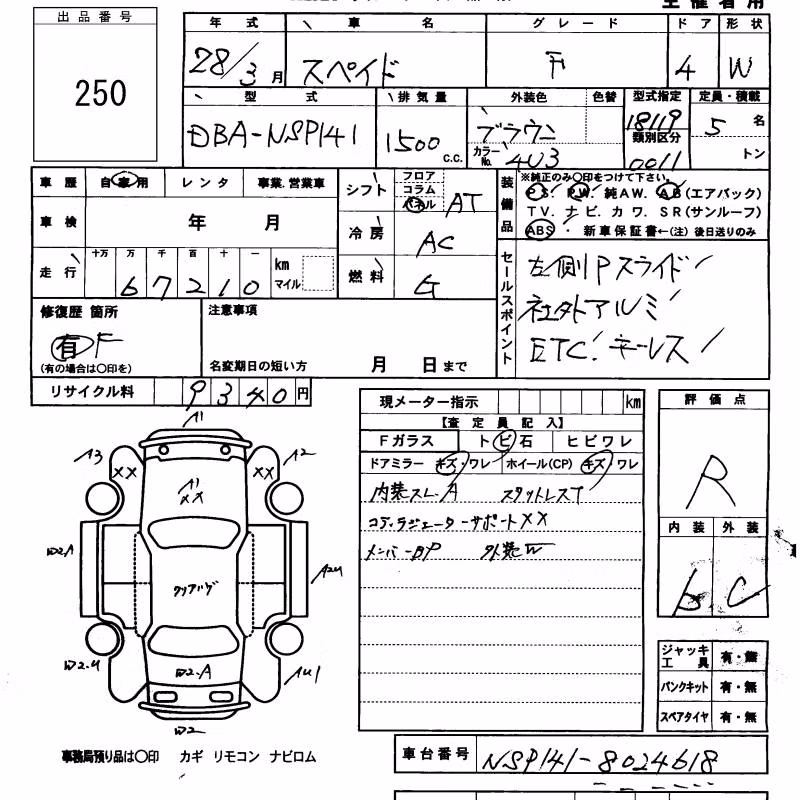 出品番号
250
年式 車名 グレード ドア 形状
28/3月 スペイド F 4 W
型式 排気量 外装色 色替 型式指定 定員・積載
DBA-NSP141 1500 C.C. ブラウン 18119 5名
カラーNo. 4U3 類別区分 0011 トン
車歴 自家用 レンタ 事業.営業車
シフト フロア コラム パネル AT
装備品 ※純正のみ○印をつけて下さい。
PS. PW. 純AW. AB(エアバック)
TV. ナビ. カワ. SR(サンルーフ)
ABS ・ 新車保証書←(注) 後日送りのみ
車検 年 月
冷房 AC
走行 十万 万 千 百 十 一
67210 km マイル
燃料 G
セールスポイント
左側Pスライド
社外アルミ
ETC! キーレス
修復歴 箇所
有 F
(有の場合は○印を)
注意事項
名変期日の短い方 月 日まで
リサイクル料 9340円
現メーター指示 km
【査定員記入】
Fガラス トビ石 ヒビワレ
ドアミラー キズ・ワレ ホイール(CP) キズ・ワレ
内装スレ.A スタットレスT
コア.ラジエーターサポートXX
メンバーBP 外装W
評価点
R
内装 外装
b C
ジャッキ工具 有・無
パンクキット 有・無
スペアタイヤ 有・無
A1
A3 XX XX A2
A1
XX
クリアハゲ
A2U
U2.A
A1
事務局預り品は○印 カギ リモコン ナビロム
車台番号 NSP141-8024618